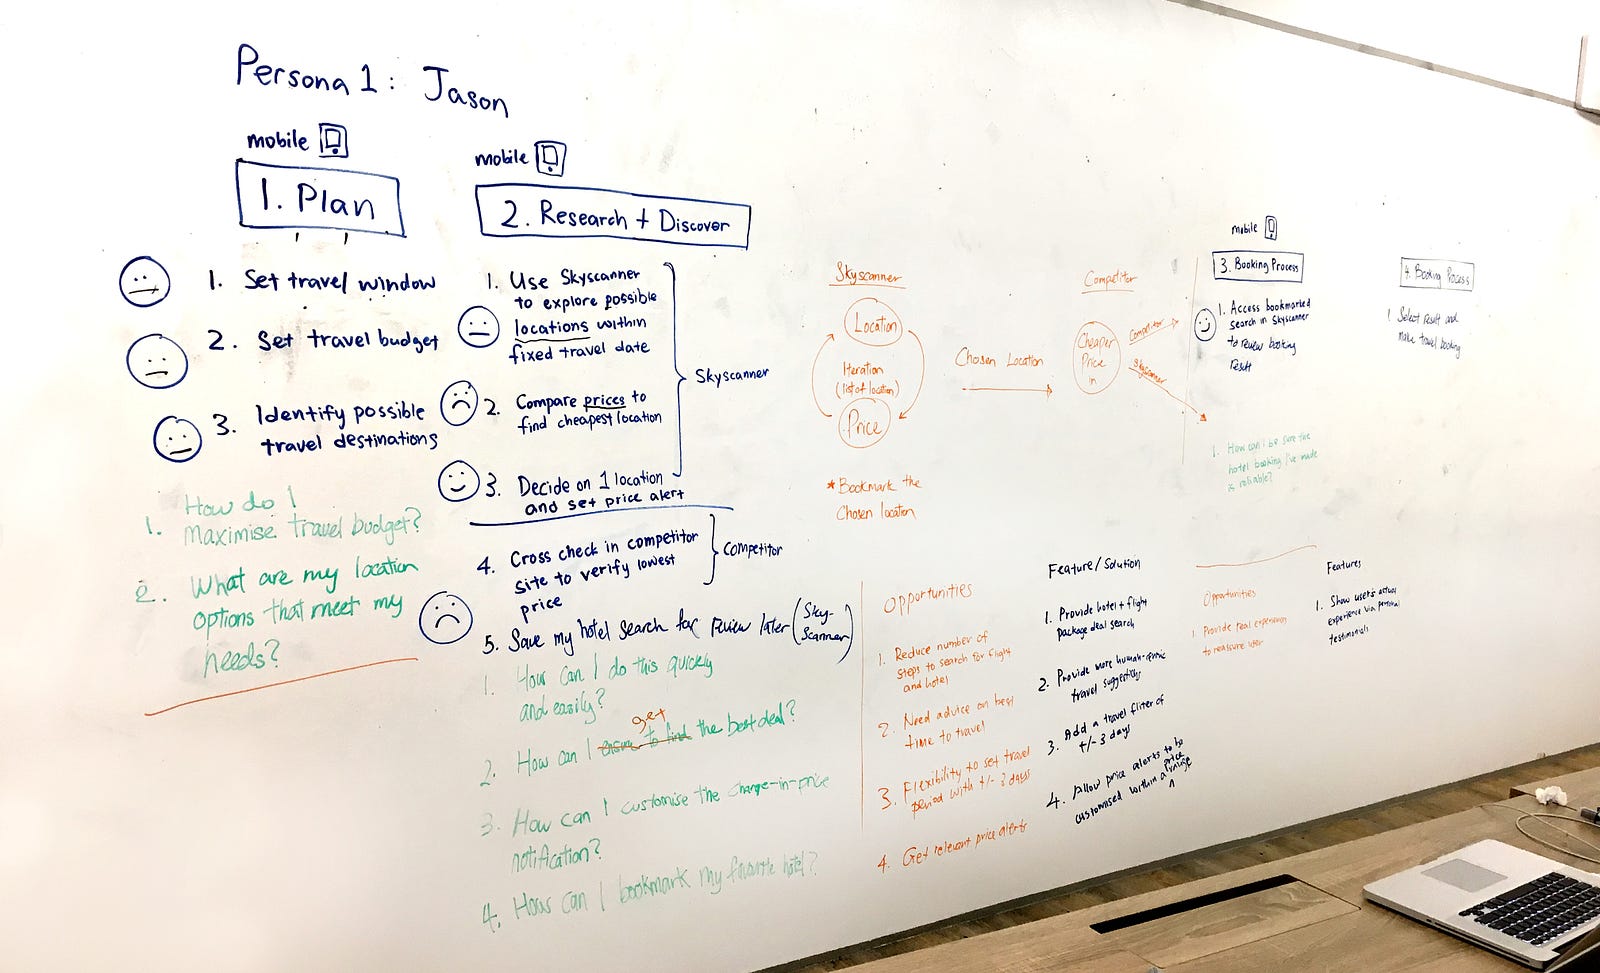 Persona 1: Jason
mobile
1. Plan
1. Set travel window
2. Set travel budget
3. Identify possible
travel destinations
1. How do I
Maximise travel budget?
2. What are my location
options that meet my
needs?
mobile
2. Research + Discover
1. Use Skyscanner
to explore possible
locations within
fixed travel date
2. Compare prices to
find cheapest location
3. Decide on 1 location
and set price alert
Skyscanner
4. Cross check in competitor
site to verify lowest
price
Competitor
5. Save my hotel search for review later (Sky-
Scanner)
1. How can I do this quickly
and easily?
get
2. How can I ensure to find the best deal?
3. How can I customise the change-in-price
notification?
4. How can I bookmark my favourite hotel?
Skyscanner
Location
Iteration
(list of location)
Price
* Bookmark the
Chosen location
Chosen Location
Competitor
Cheaper
Price
in
Competitor
Skyscanner
Opportunities
1. Reduce number of
steps to search for flight
and hotel
2. Need advice on best
time to travel
3. Flexibility to set travel
period with +/- 3 days
4. Get relevant price alerts
Feature/Solution
1. Provide hotel + flight
package deal search
2. Provide more human-centric
travel suggestions
3. Add a travel fliter of
+/- 3 days
4. Allow price alerts to be
customised within a price range
mobile
3. Booking Process
1. Access bookmarked
search in Skyscanner
to review booking
result
1. How can I be sure the
hotel booking I've made
is reliable?
Opportunities
1. Provide real experience
to reassure user
Features
1. Show user's actual
experience via personal
testimonials
4. Booking Process
1. Select result and
make travel booking